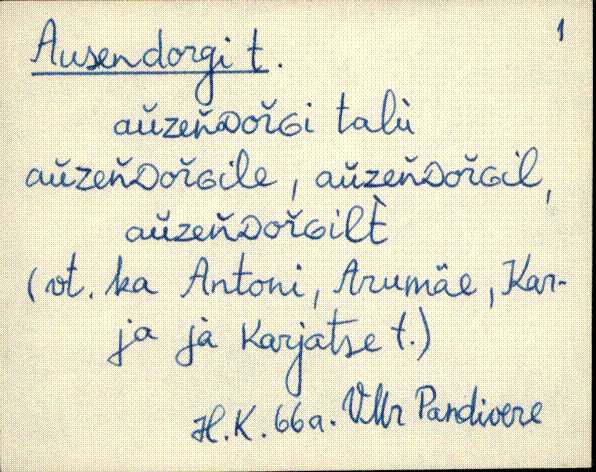 1
Ausendorgi t.
aŭzeňᴅořɢi talù
aŭzeňᴅořɢile, aŭzeňᴅořɢil,
aŭzeňᴅořɢilᴛ̀
(vt. ka Antoni, Arumäe, Kar-
ja jà Karjatse t.)
H.K. 66a. VMr Pandivere